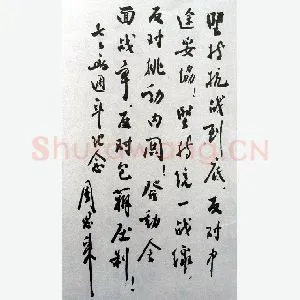 坚持抗战到底，反对中
途妥协！坚持统一战线，
反对挑动内哄！发动全
面战争，反对包办压制！
七七四週年纪念
周恩来
Shufawang.CN